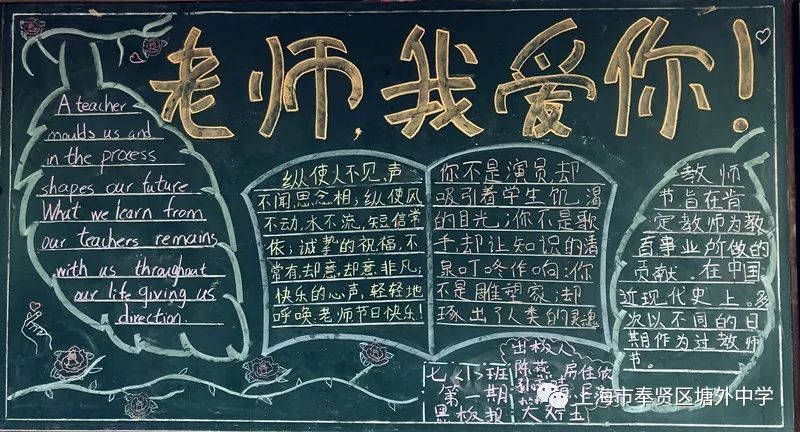 老师,我爱你!
A teacher
moulds us and
in the process
shapes our future.
What we learn from
our teachers remains
with us throughout
our life giving us
direction.
纵使人不见,声
不闻思念相;纵使风
不动,水不流,短信常
依;诚挚的祝福,不
常有却意;却意非凡;
快乐的心声,轻轻地
呼唤,老师节日快乐!
你不是演员却
吸引着学生饥渴
的目光;你不是歌
手,却让知识的清
泉叮咚作响;你
不是雕塑家;却
琢出了人类的灵魂
教师
节旨在肯
定教师为教
育事业所做的
贡献.在中国
近现代史上.多
次以不同的日
期作为过教师
节。
七(1)班
第一期
黑板报
出板人
陈燕
上海市奉贤区塘外中学